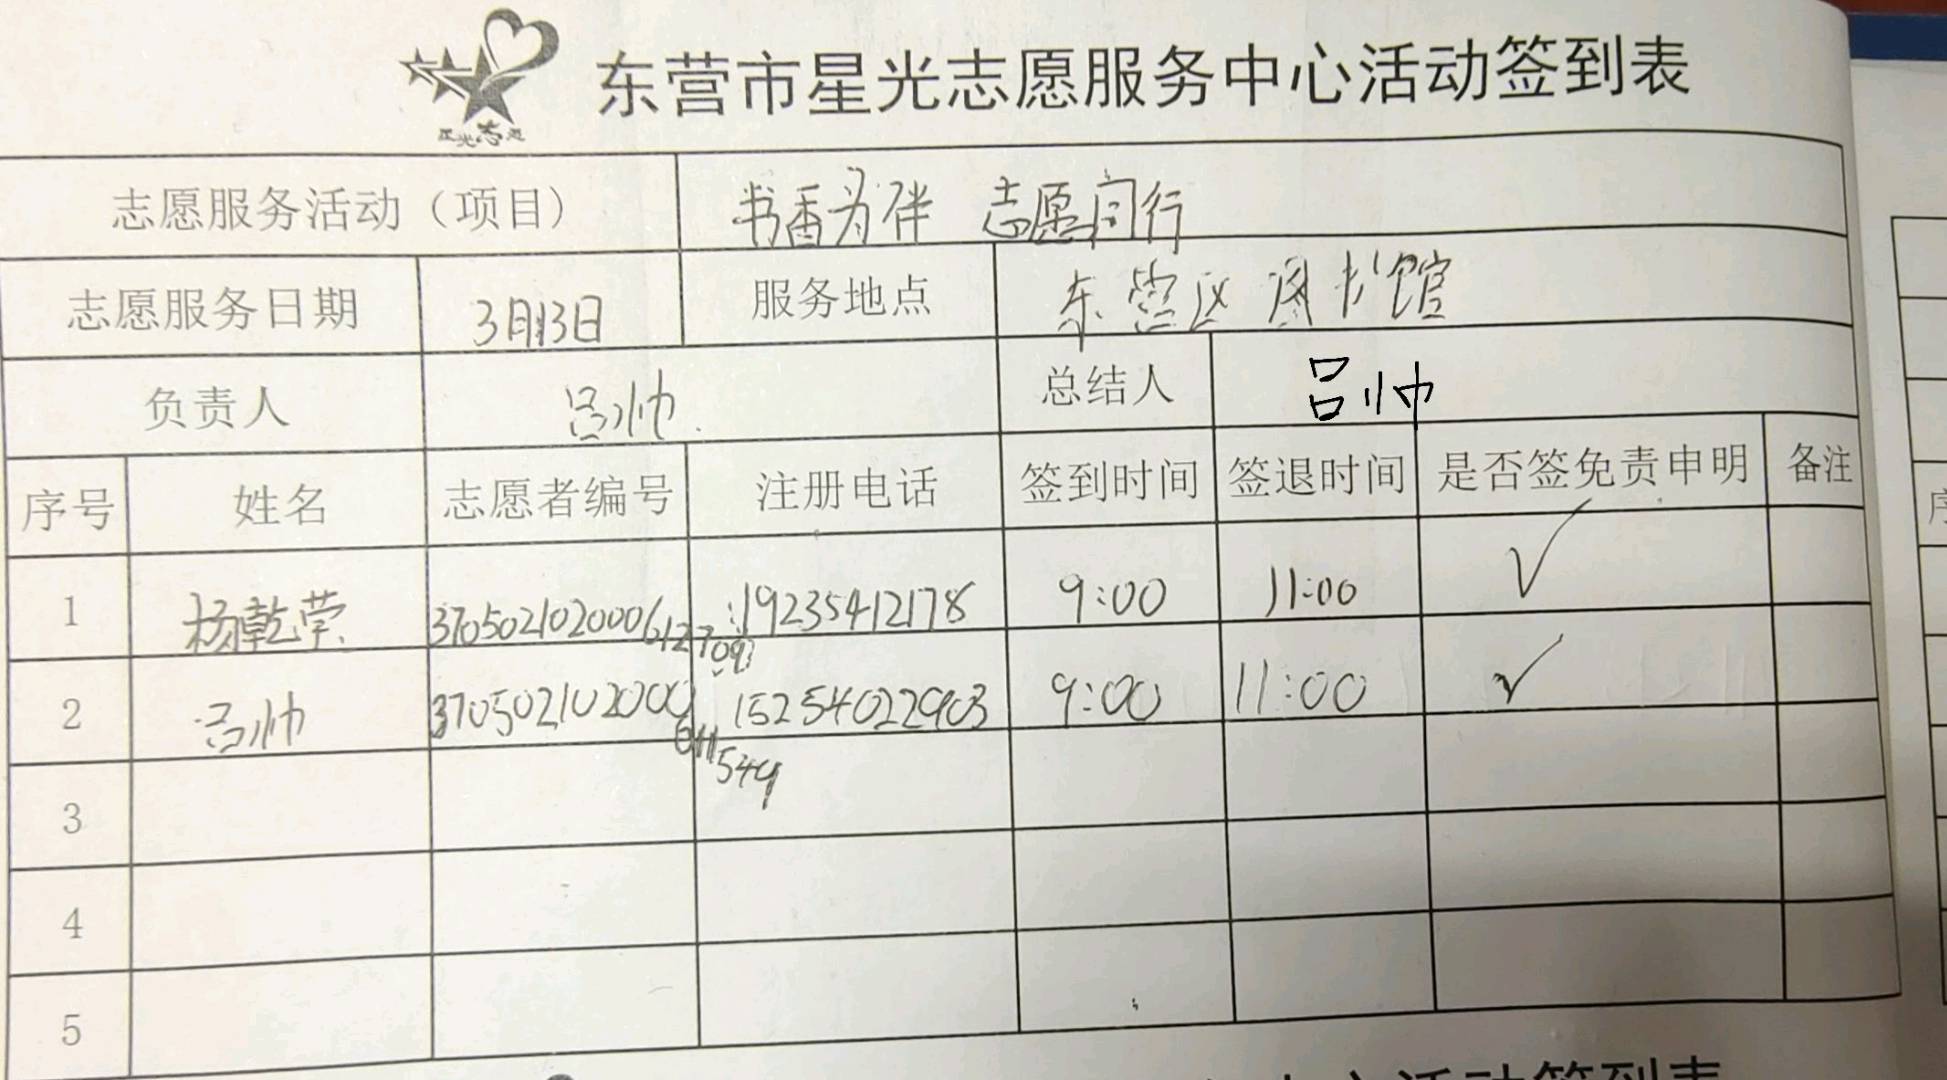 星光志愿
东营市星光志愿服务中心活动签到表
志愿服务活动（项目） 书香为伴 志愿同行
志愿服务日期 3月13日 服务地点 东营区图书馆
负责人 吕帅 总结人 吕帅
序号 姓名 志愿者编号 注册电话 签到时间 签退时间 是否签免责申明 备注
1 杨乾荣 370502102000612709 19235412178 9:00 11:00 ✓
2 吕帅 370502102000611549 15254022903 9:00 11:00 ✓
3
4
5
中心活动签到表